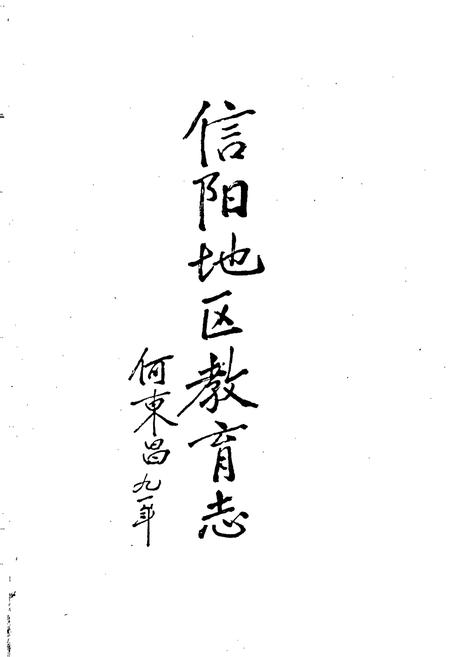 信阳地区教育志
何東昌九一年